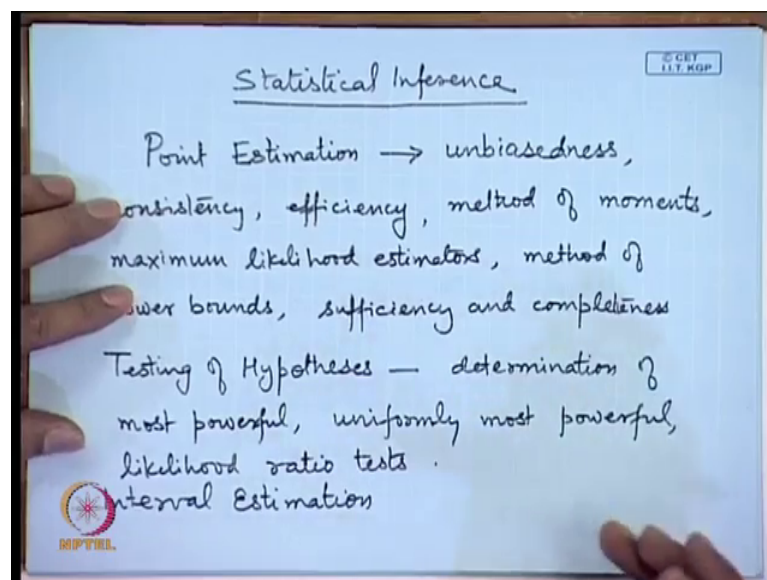 Statistical Inference
© CET
I.I.T. KGP
Point Estimation → unbiasedness,
onsistency, efficiency, method of moments,
maximum likelihood estimators, method of
ower bounds, sufficiency and completeness
Testing of Hypotheses — determination of
most powerful, uniformly most powerful,
likelihood ratio tests.
nterval Estimation
NPTEL